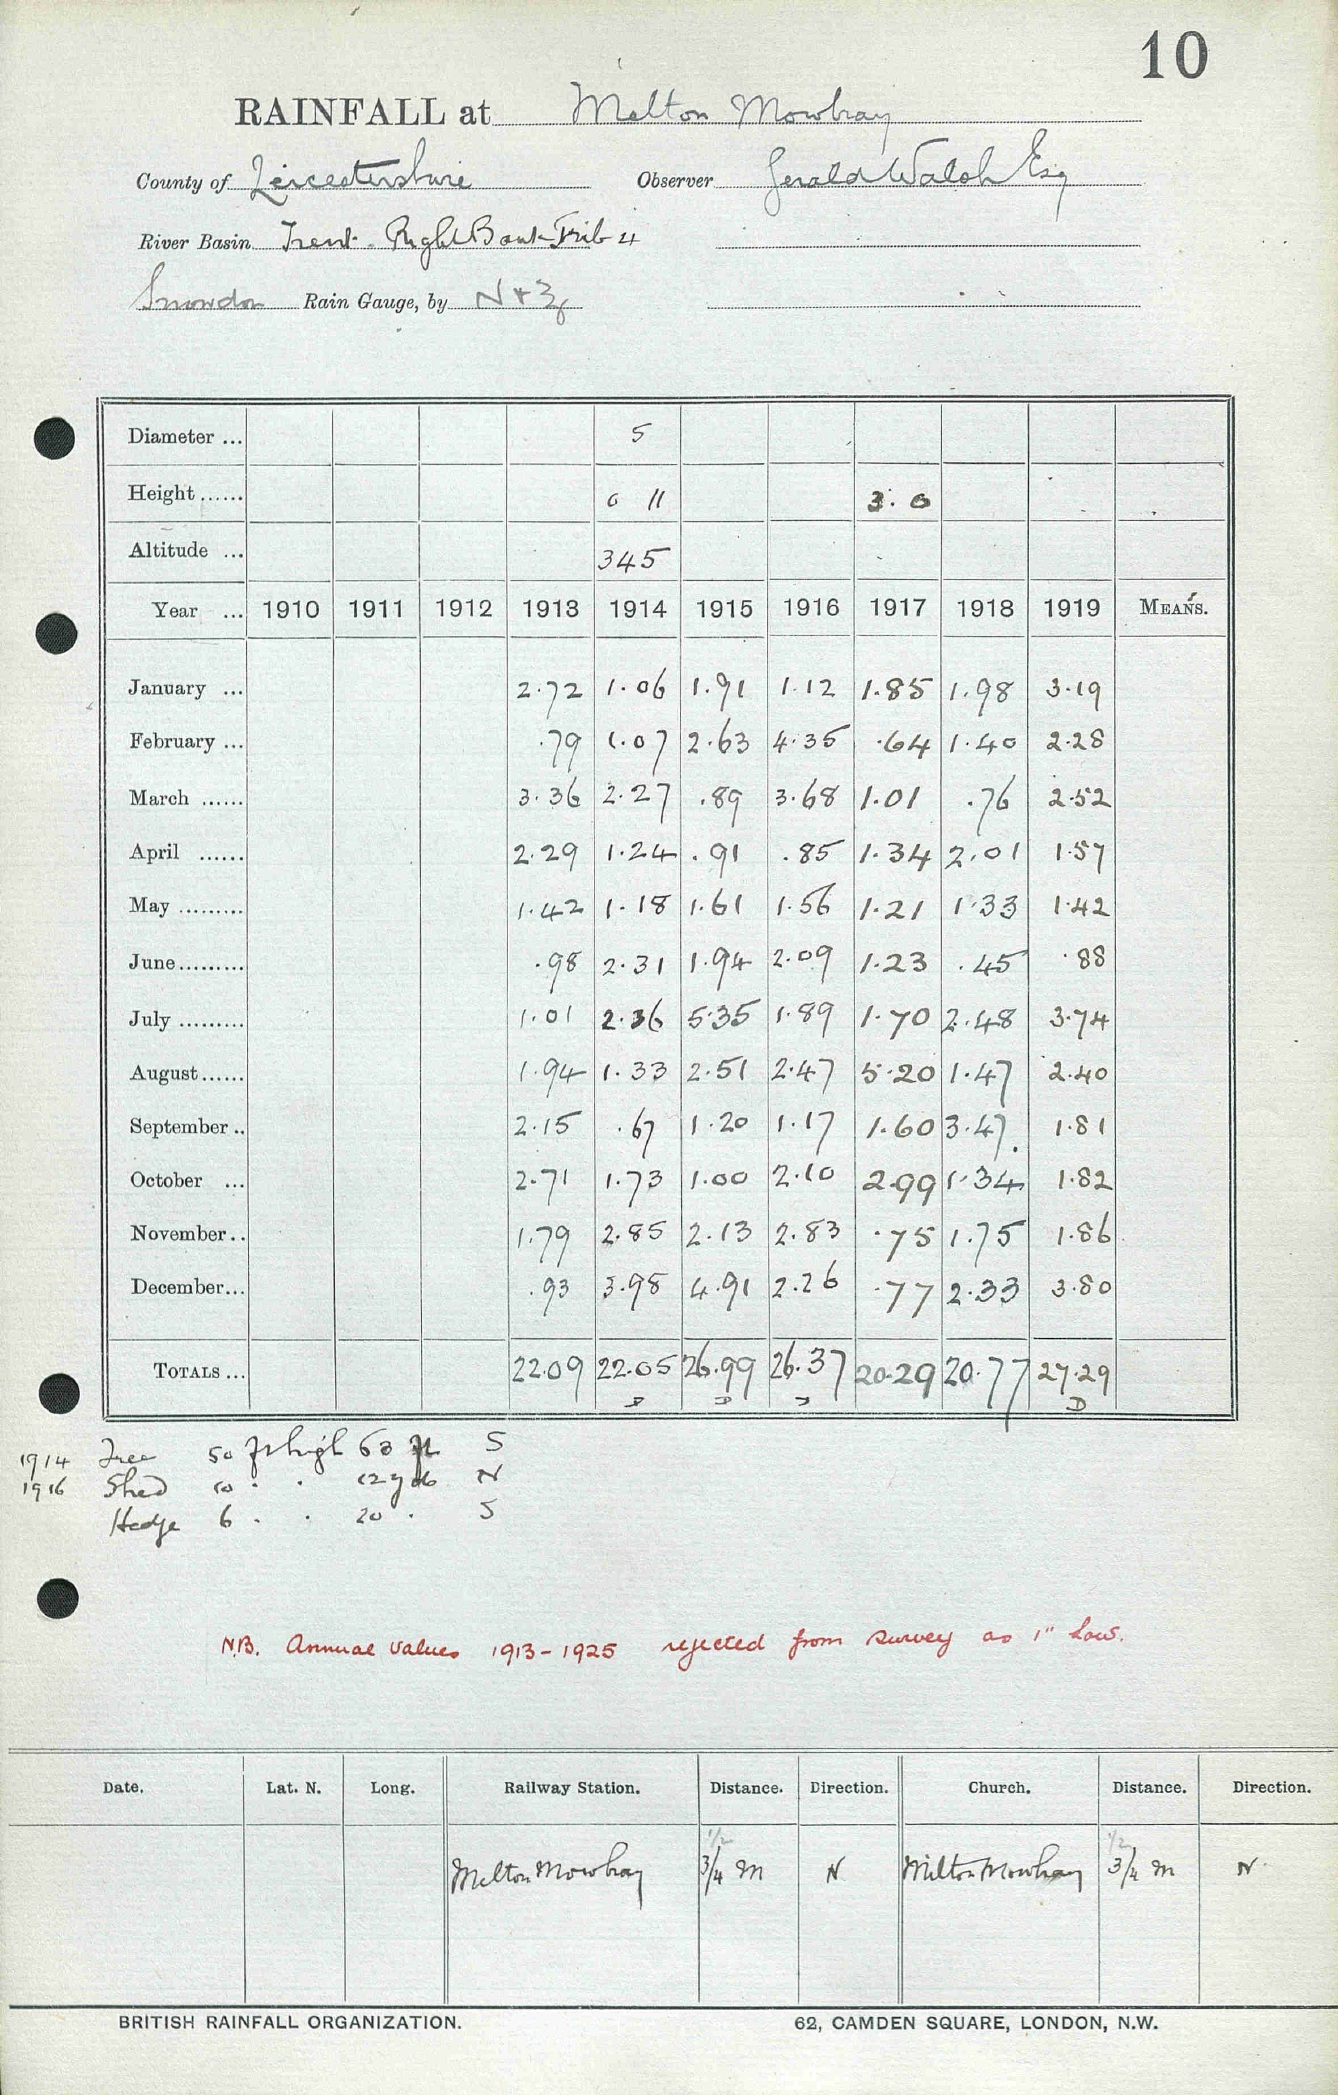 10
RAINFALL at Melton Mowbray
County of Leicestershire Observer Gerald Walsh Esq
River Basin Trent. Right Bank Trib 4
Snowdon Rain Gauge, by N + Z
Diameter ... 5
Height ...... 0 11 3. 0
Altitude ... 345
Year ... 1910 1911 1912 1913 1914 1915 1916 1917 1918 1919 MEANS.
January ... 2.72 1.06 1.91 1.12 1.85 1.98 3.19
February ... .79 1.07 2.63 4.35 .64 1.40 2.28
March ...... 3.36 2.27 .89 3.68 1.01 .76 2.52
April ...... 2.29 1.24 .91 .85 1.34 2.01 1.57
May ......... 1.42 1.18 1.61 1.56 1.21 1.33 1.42
June ......... .98 2.31 1.94 2.09 1.23 .45 .88
July ......... 1.01 2.36 5.35 1.89 1.70 2.48 3.74
August ...... 1.94 1.33 2.51 2.47 5.20 1.47 2.40
September .. 2.15 .67 1.20 1.17 1.60 3.47 1.81
October ... 2.71 1.73 1.00 2.10 2.99 1.34 1.82
November .. 1.79 2.85 2.13 2.83 .75 1.75 1.86
December ... .93 3.98 4.91 2.26 .77 2.33 3.80
TOTALS ... 22.09 22.05 26.99 26.37 20.29 20.77 27.29
D D D D
1914 Tree 50 ft high 63 ft S
1916 Shed 10 . . 12 yds N
Hedge 6 . . 20 . S
N.B. Annual Values 1913-1925 rejected from survey as 1" low.
Date. Lat. N. Long. Railway Station. Distance. Direction. Church. Distance. Direction.
1/2 1/2
Melton Mowbray 3/4 m N Melton Mowbray 3/4 m N
BRITISH RAINFALL ORGANIZATION. 62, CAMDEN SQUARE, LONDON, N.W.